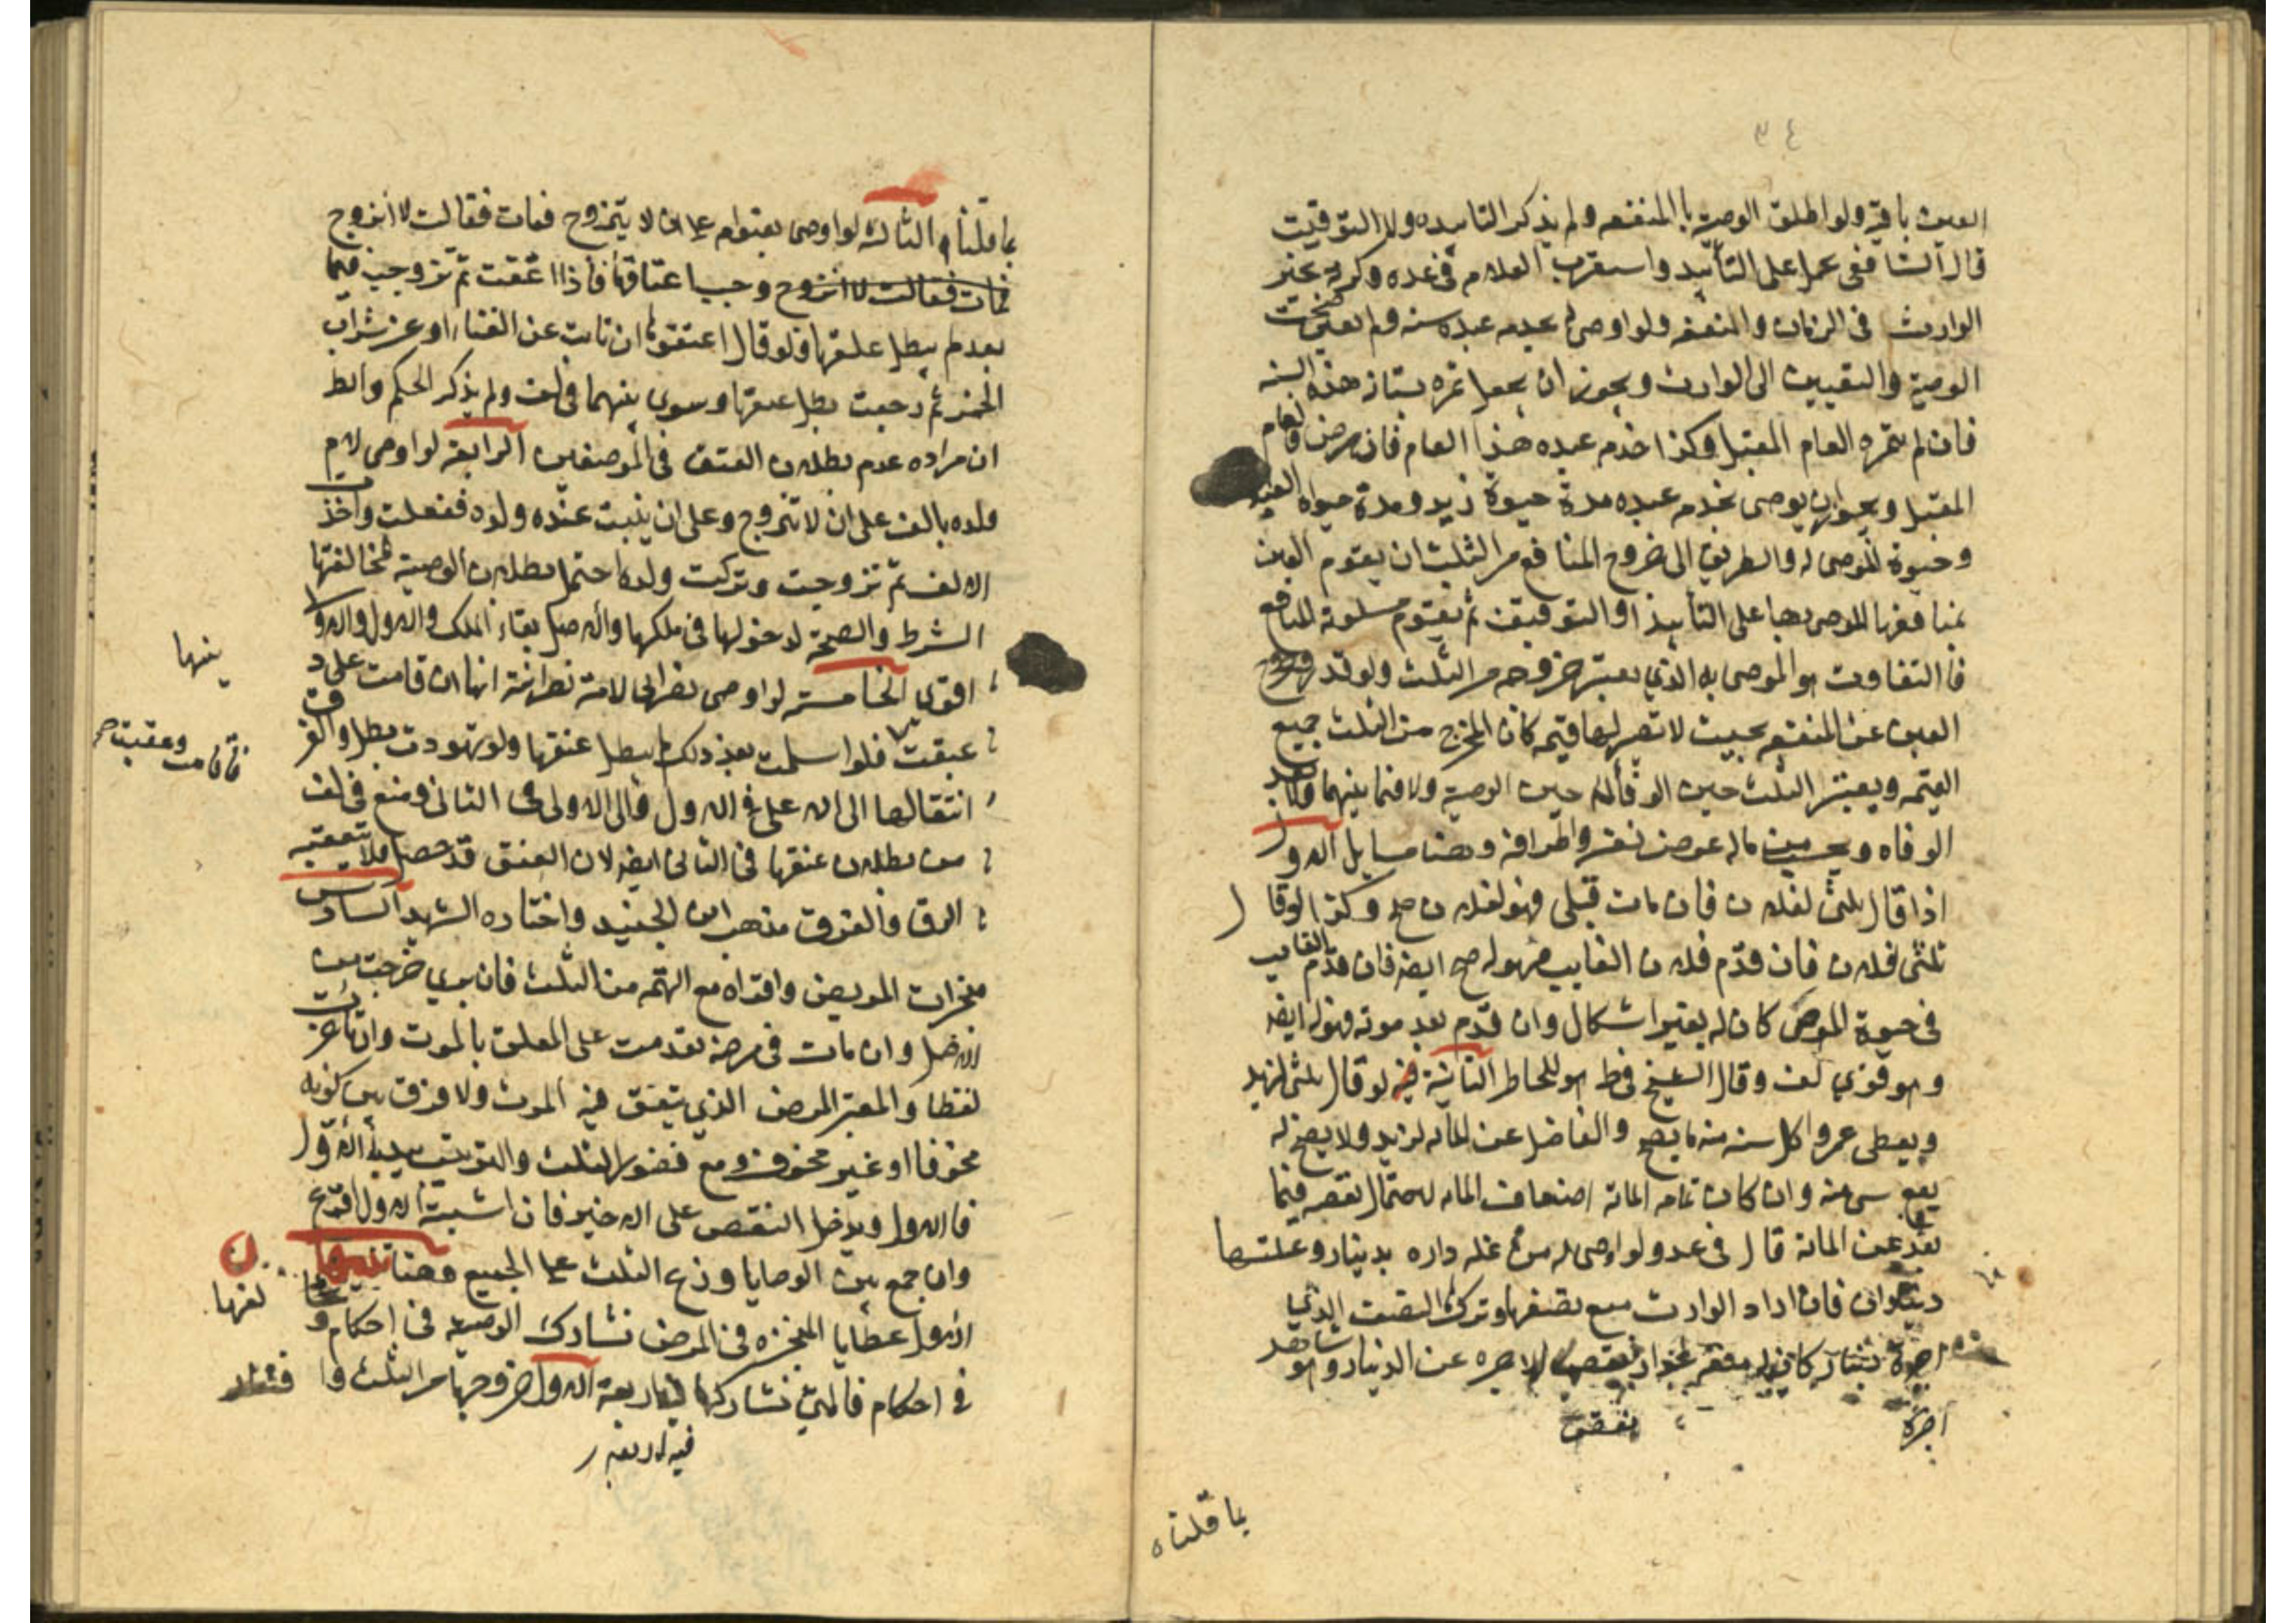 ٣٤
العين باقية ولو اطلق الوصية بالمنفعة ولم يذكر التابيد ولا التوقيت
قال الشافعي حمل على التأبيد واستقرب العلام في عده وكره يخير
الوارث في الزمان والمنفعه ولو اوصى بخدمه عبده سنه ولم يعين صحت
الوصية والتعيين الى الوارث ويجوز ان يجعل ثمره بستانه هذه السنه
فان لم يثمره العام المقبل وكذا خدمه عبده هذا العام فان مرض فالعام
المقبل ويجوز ان يوصى بخدمه عبده مدة حيوة زيد ومدة حيوة العبد
وحيوة الموصى له والطريق الى خروج المنافع من الثلث ان يقوم العين
بمنافعها الموصى بها على التأبيد او التوقيت ثم يقوم مسلوبة المنافع
فالتفاوت هو الموصى به الذي يعتبر خروجه من الثلث ولو قدر خروج
العين عن المنفعه بحيث لا تصير لها قيمه كان المخرج من الثلث جميع
القيمه ويعتبر الثلث حين الوفاة لا حين الوصية ولا فيما بينهما ولا بعد
الوفاه ويحسب من ماله عوض نفسه واطرافه وهنا مسايل الاول
اذا قال ثلثي لفلان فان مات قبلي فهو لفلان صح وكذا لو قال
ثلثي لفلان فان قدم فلان الغايب فهو له صح ايضا فان قدم الغايب
في حيوة الموصى كان له بغير اشكال وان قدم بعد موته فهو له ايضا
وهو قوي لف وقال الشيخ في ط هو للحاضر الثانية لو قال ثلثي لزيد
ويعطى عمروا كل سنه منه ما يصح والفاضل عن المائه لزيد ولا يصح له
بيع شي منه وان كان تمامه المائة اضعاف المائه لاحتمال نقصه فيما
بعد عن المائة قال في عد ولو اوصى له من غله داره بدينار وغلتها
ديناران فان اراد الوارث بيع نصفها وترك النصف الذي
اجرته دينار كان له منعه لجواز نقص الاجره عن الدينار وهو
اجرة نقص
بما قلناه
بما قلناه الثالثه لو اوصى بعتق امه على ان لا يتزوج فمات فقالت لا اتزوج
فمات فقالت لا اتزوج وجب اعتاقها فاذا اعتقت ثم تزوجت فيما
بعد لم يبطل عتقها ولو قال اعتقوها ان تابت عن الغناء او عن شراب
الخمر ثم رجعت بطل عتقها وسوى بينهما في لف ولم يذكر الحكم والظ
ان مراده عدم بطلان العتق في الموضعين الرابعة لو اوصى لام
ولده بالف على ان لا تتزوج وعلى ان يثبت عنده ولده ففعلت واخذت
الالف ثم تزوجت وتركت ولده احتمل بطلان الوصية لمخالفتها
الشرط والصحة لدخولها في ملكها والاصل بقاء الملك والاول
اقوى الخامسة لو اوصى نصراني لامة نصرانية انها ان قامت على د
عتقت فلو اسلمت بعد ذلك لم يبطل عتقها ولو تهودت بطل والفرق
انتقالها الى الا على في الاول والى الاولى في الثانى ومنع في لف
من بطلان عتقها في الثانى ايضا لان العتق قد حصل فلا يتعقبه
الرق والفرق مذهب ابن الجنيد واختاره الشهيد السادس
منجزات المريض واقراره مع التهمه من الثلث فان برى خرجت من
الاصل وان مات في مرضه تقدمت على المعلق بالموت وان تاخرت
لفظا والمعتبر المرض الذي يتفق فيه الموت ولا فرق بين كونه
مخوفا او غير مخوف ومع قصور الثلث والترتيب يبدأ الاول
فالاول ويدخل النقص على الاخير فان اشتبه الاول اقرع
وان جمع بين الوصايا وزع الثلث على الجميع وهنا
الاول عطايا المنجزه في المرض تشارك الوصية في احكام و
في احكام فالتي تشاركها فيه اربعة الاول خروجها من الثلث وا
فيه اربعه
بينها
فاقامت وعقبت